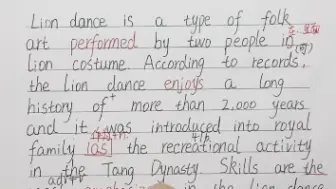 Lion dance is a type of folk
art performed by two people in
lion costume. According to records,
the lion dance enjoys a long
history of more than 2,000 years
and it was introduced into royal
family as the recreational activity
in the Tang Dynasty Skills are the
in the lion dance